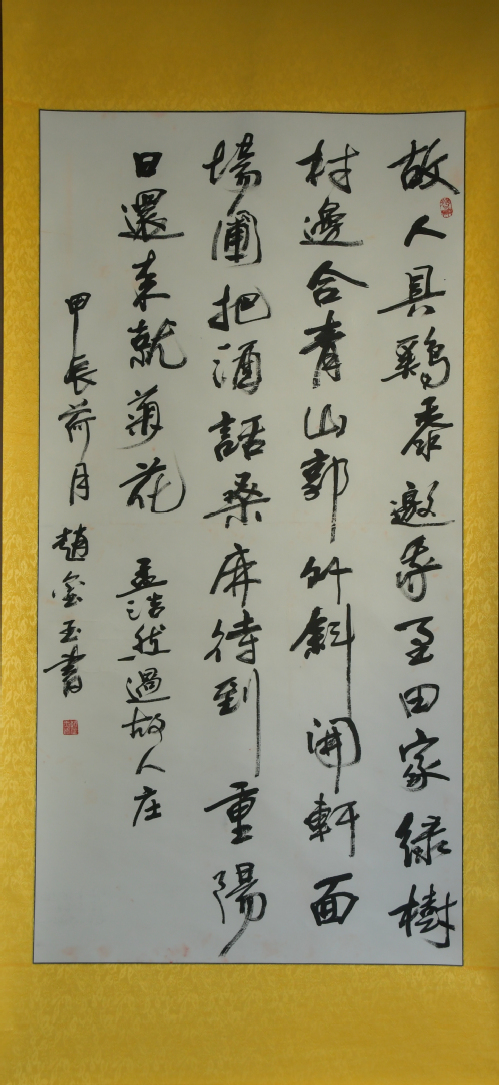 故人具鷄黍邀我至田家綠樹
村邊合青山郭外斜開軒面
場圃把酒話桑麻待到重陽
日還来就菊花 孟浩然過故人庄
甲辰荷月趙金玉書